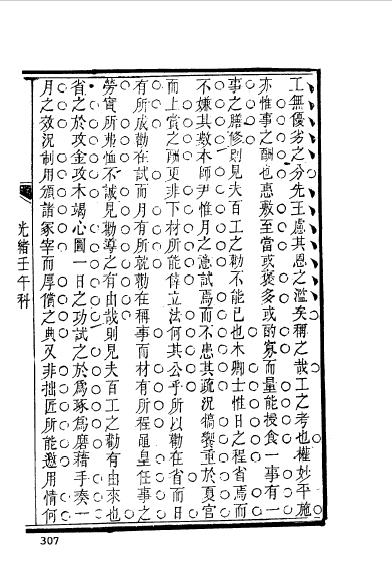 工無優劣之分先王慮其恩之濫矣稱之哉工之考也權妙平施
亦惟事之酬也惠敷至當或褒多或酌寡而量能授食一事有一
事之勝修則見夫百工之勸不能已也木鄉士惟日之程省焉而
不嫌其數本師尹惟月之慇試焉而不患其疏況犒饗重於夏官
而上賞之酬更非下材所能倖立法何其公乎所以勸在省而日
有所成勸在試而月有所就勸在稱事而材有所程颭皇任事之
勞實所弗恤不誠見勸導之有由哉則見夫百工之勸有由來也
省之於攻金攻木竭心圖一日之功試之於為琢為磨藉手奏一
月之效況制用頒諸冢宰而厚償之典又非拙匠所能邀用情何
光緒壬午科
307